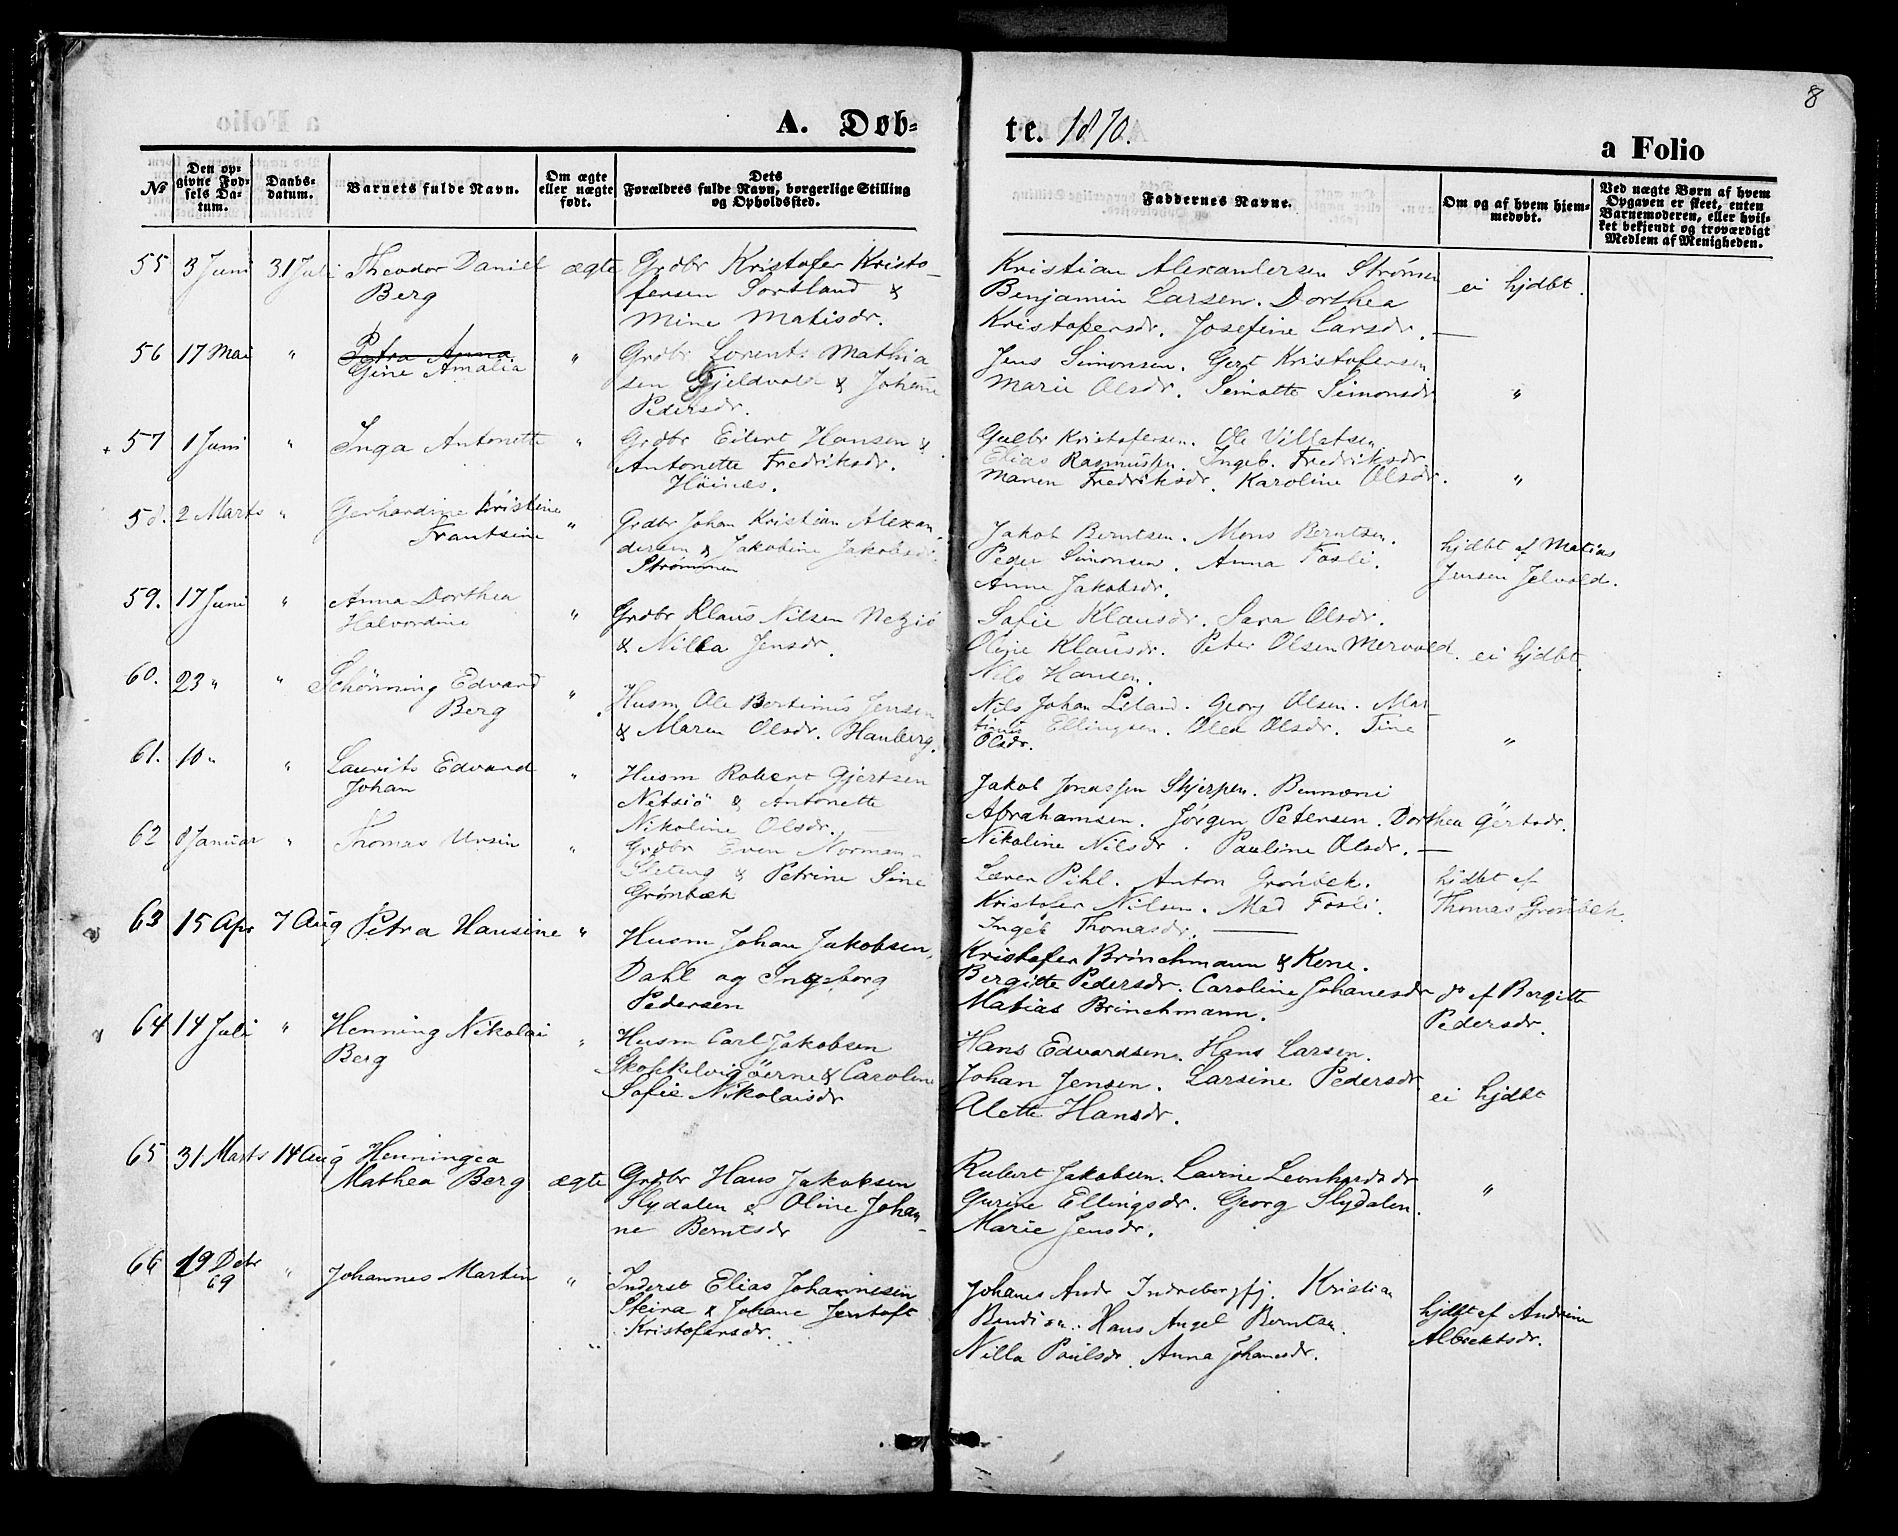 8
A. Døb-
te. 1870.
a Folio
№
Den op-
givne Fød-
sels Da-
tum.
Daabs-
datum.
Barnets fulde Navn.
Om ægte
eller uægte
født.
Dets
Forældres fulde Navn, borgerlige Stilling
og Opholdssted.
Faddernes Navne.
Om og af hvem hjem-
medøbt.
Ved uægte Børn af hvem
Opgaven er skeet, enten
Barnemoderen, eller hvil-
ket bekjendt og troværdigt
Medlem af Menigheden.
55 3 Juni 31 Juli Theodor Daniel
Berg
ægte
Grdbr Kristofer Kristo-
fersen Sortland &
Mine Matisdr.
Kristian Alexandersen Strømen
Benjamin Larsen. Dorthea
Kristofersdr. Josefine Larsdr.
ei hjdbt.
56 17 Mai " Petra Anna
Gine Amalia
"
Grdbr Lorents Mathia
sen Gjeldvolor & Johane
Pedersdr.
Jens Simonsen. Gert Kristofersen
Marie Olsdr. Simonsdr
"
57 1 Juni " Inga Antonette
"
Grdbr Eilert Hansen &
Antonette Fredriksdr.
Høinæs.
Gulbr Kristofersen. Ole Villatsen
Elias Rasmussen. Ingeb. Fredriksdr
Maren Fredriksdr. Karoline Olsdr.
"
58. 2 Marts " Gerhardine Kristine
Frantsine
"
Grdbr Johan Kristian Alexan-
dersen & Jakobine Jakobsdr.
Strømmen
Jakob Berntsen. Mons Berntsen.
Peder Simonsen. Anna Fosli.
Anne Jakobsdr.
hjdbt af Matias
Jensen Jelvold.
59. 17 Juni " Anna Dorthea
Halvordine
"
Grdbr Klaus Nilsen Netsiö
& Nilla Jensdr.
Sofie Klausdr. Sara Olsdr.
Oline Klausdr. Peter Olsen Mervold.
Nils Hansen.
ei hjdbt.
60. 23 " " Schönning Edvard
Berg
"
Husm Ole Bertinius Jensen
& Maren Olsdr. Hauberg.
Nils Johan Liland. Georg Olsen. Mar
tinus Ellingsen. Olea Olsdr. Tine
Olsdr.
"
61. 10 " " Laurits Edvard
Johan
"
Husm Robert Gjertsen
Netsiö & Antonette
Nikoline Olsdr.
Jakob Jonassen Skjerpen.
Abrahamsen. Jørgen Petersen. Dorthea Görtsdr.
Nikoline Nilsdr. Pauline Olsdr.
62 8 Januar " Thomas Ursin
"
Grdbr Even Norman
Sleteng & Petrine Sine
Grønbæk
Læren Pihl. Anton Grønbek.
Kristofer Nilsen. Mad Fosli.
Ingeb Thomasdr.
hjdbt af
Thomas Grønbek.
63 15 Apr 7 Aug Petra Hansine
"
Husm Johan Jakobsen,
Dahl og Ingeborg
Pedersen
Kristofer Brinchmann & Kone.
Bergitte Pedersdr. Caroline Johanesdr
Matias Brinchmann.
do af Bergitte
Pedersdr.
64 14 Juli " Henning Nikolai
Berg
"
Husm Carl Jakobsen
Skokkelvigöerne & Caroline
Sofie Nikolaisdr
Hans Edvardsen. Hans Larsen.
Johan Jensen. Larsine Pedersdr
Alette Hansdr.
ei hjdbt
65 31 Marts 14 Aug Henningea
Mathea Berg
ægte
Grdbr Hans Jakobsen
Slydalen & Oline Johan-
ne Berntsdr
Robert Jakobsen. Lavine Leonhardsdr
Gurine Ellingsdr. Georg Slydalen.
Marie Jensdr.
"
66 19 Debr
69
" Johannes Martin
"
Inderst Elias Johannesen
Steira & Johane Jentoft
Kristofersdr.
Johanes Andr Indrebergfj. Kristian
Bendiksen. Hans Angel Berntsen.
Nilla Paulsdr. Anna Johanesdr.
hjdbt af Andrine
Albrektsdr.